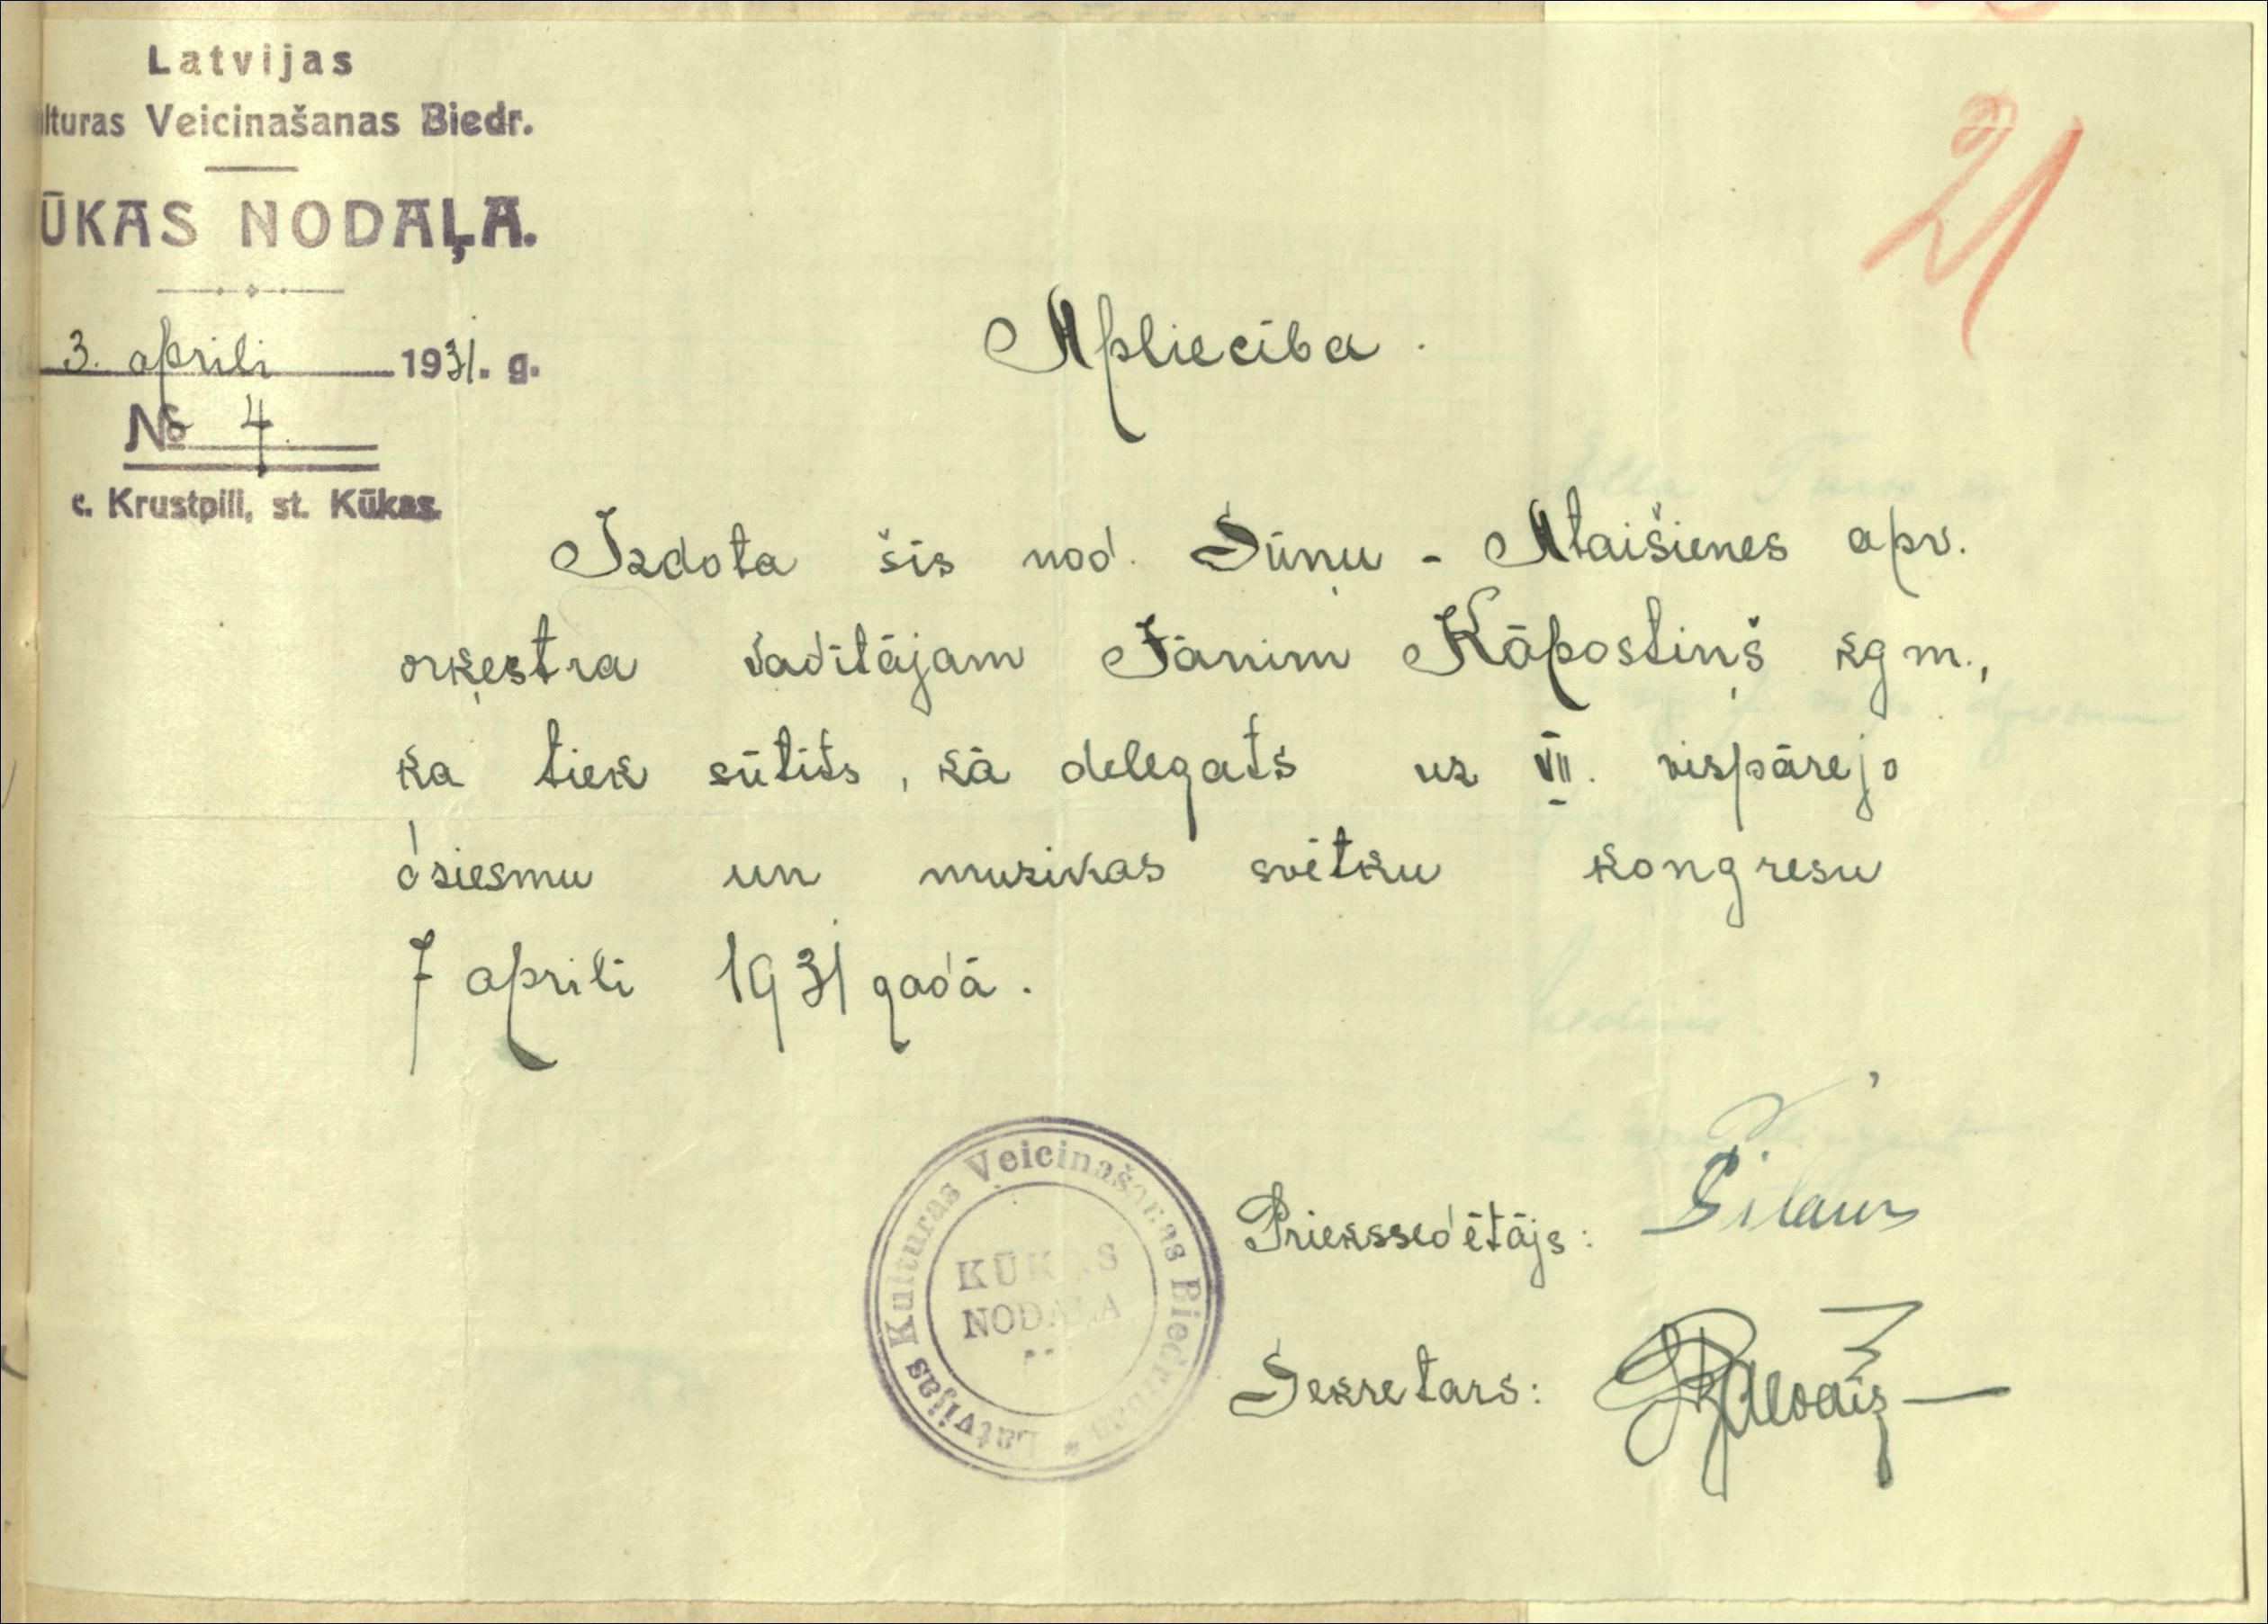 Latvijas
lturas Veicinašanas Biedr.
ŪKAS NODAĻA.
3. aprili 1931. g.
№ 4.
c. Krustpili, st. Kūkas.
21
Apliecība.
Izdota šīs nod. Sūņu - Ataišienes apv.
orķestra vadītājam Jānim Kāpostiņš kgm.,
ka tiek sūtīts, kā delegats uz VII. vispārejo
dziesmu un muzikas svētku kongresu
7 aprili 1931 gadā.
Latvijas Kulturas Veicinašanas Biedrības *
KŪKAS
NODAĻA
Priekssedētājs:
Sekretars: